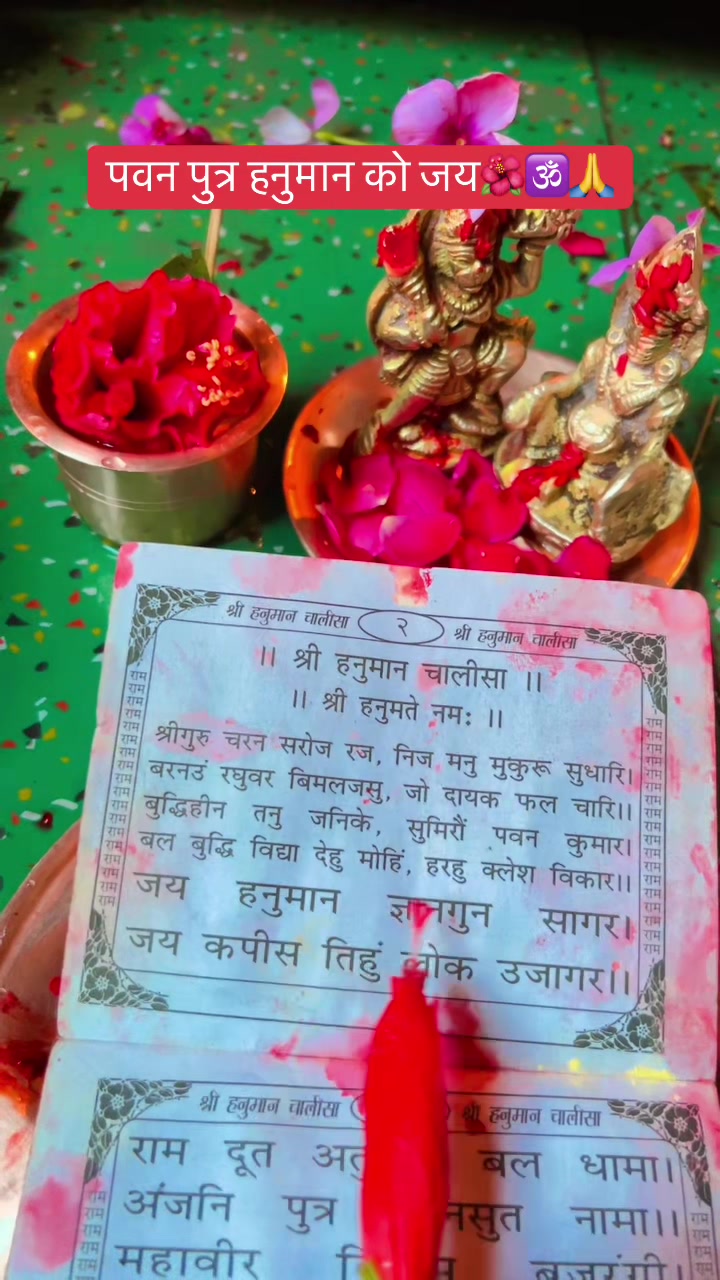 पवन पुत्र हनुमान को जय🌺🕉️🙏
श्री हनुमान चालीसा २ श्री हनुमान चालीसा
।। श्री हनुमान चालीसा ।।
।। श्री हनुमते नमः ।।
श्रीगुरु चरन सरोज रज, निज मनु मुकुरू सुधारि।
बरनउं रघुवर बिमलजसु, जो दायक फल चारि।।
बुद्धिहीन तनु जनिके, सुमिरौं पवन कुमार।
बल बुद्धि विद्या देहु मोहिं, हरहु क्लेश विकार।।
जय हनुमान सागर।
जय कपीस तिहुं उजागर।।
राम राम राम राम राम राम राम राम राम राम राम राम राम राम राम
राम राम राम राम राम राम राम राम राम राम राम राम राम राम राम
श्री हनुमान चालीसा श्री हनुमान चालीसा
राम दूत बल धामा।
अंजनि पुत्र नामा।।
महावीर बजरंगी।